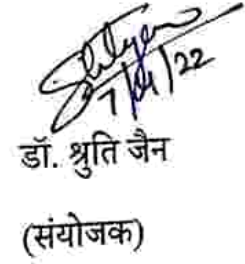 7/4/22
डॉ. श्रुति जैन
(संयोजक)